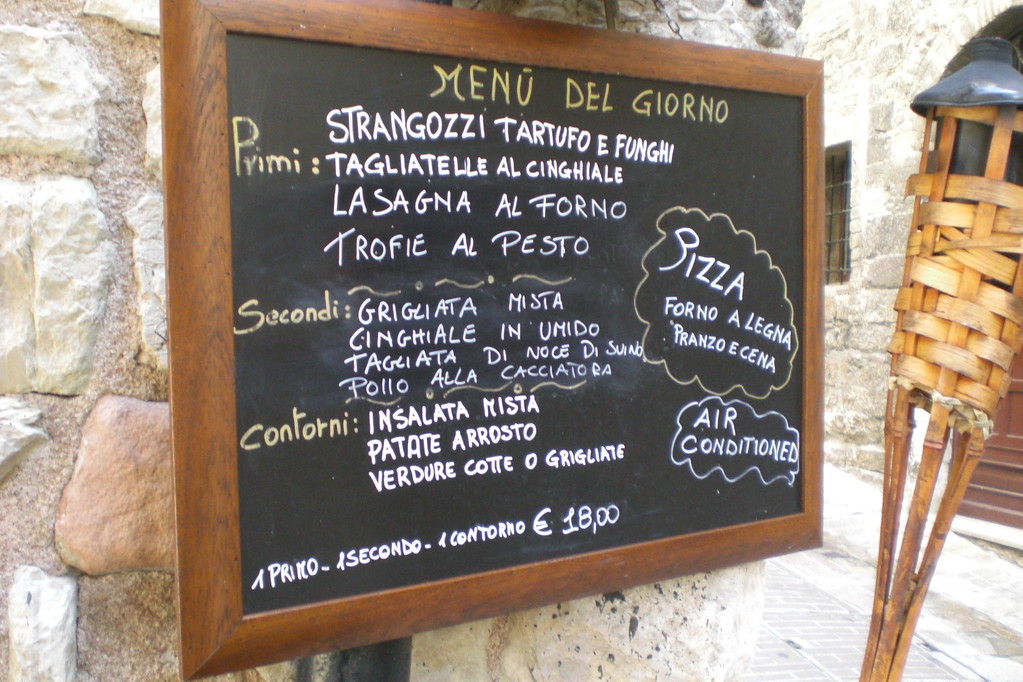 MENÙ DEL GIORNO
Primi: STRANGOZZI TARTUFO E FUNGHI
TAGLIATELLE AL CINGHIALE
LASAGNA AL FORNO
TROFIE AL PESTO
Secondi: GRIGLIATA MISTA
CINGHIALE IN UMIDO
TAGLIATA DI NOCE DI SUINO
POLLO ALLA CACCIATORA
Contorni: INSALATA MISTA
PATATE ARROSTO
VERDURE COTTE O GRIGLIATE
1 PRIMO - 1 SECONDO - 1 CONTORNO € 18,00
PIZZA
FORNO A LEGNA
PRANZO E CENA
AIR
CONDITIONED